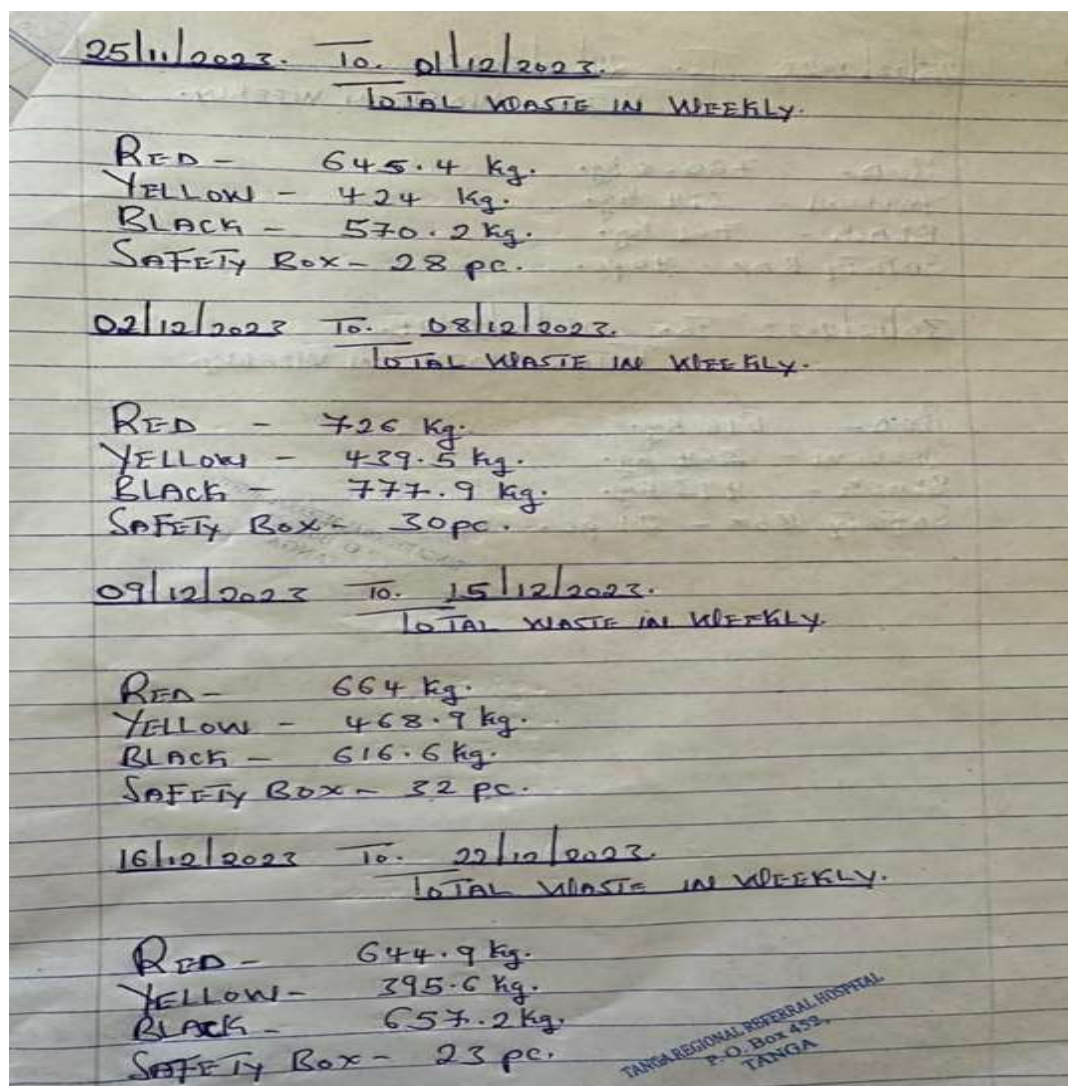 25/11/2023. To. 01/12/2023.
TOTAL WASTE IN WEEKLY.
RED - 645.4 Kg.
YELLOW - 424 Kg.
BLACK - 570.2 Kg.
SAFETY BOX - 28 pc.
02/12/2023 To. 08/12/2023.
TOTAL WASTE IN WEEKLY.
RED - 726 Kg.
YELLOW - 439.5 Kg.
BLACK - 777.9 Kg.
SAFETY BOX - 30 pc.
09/12/2023 To. 15/12/2023.
TOTAL WASTE IN WEEKLY.
RED - 664 Kg.
YELLOW - 468.9 Kg.
BLACK - 616.6 Kg.
SAFETY BOX - 32 pc.
16/12/2023 To. 22/12/2023.
TOTAL WASTE IN WEEKLY.
RED - 644.9 Kg.
YELLOW - 395.6 Kg.
BLACK - 657.2 Kg.
SAFETY BOX - 23 pc.
TANGA REGIONAL REFERRAL HOSPITAL
P.O. Box 452,
TANGA